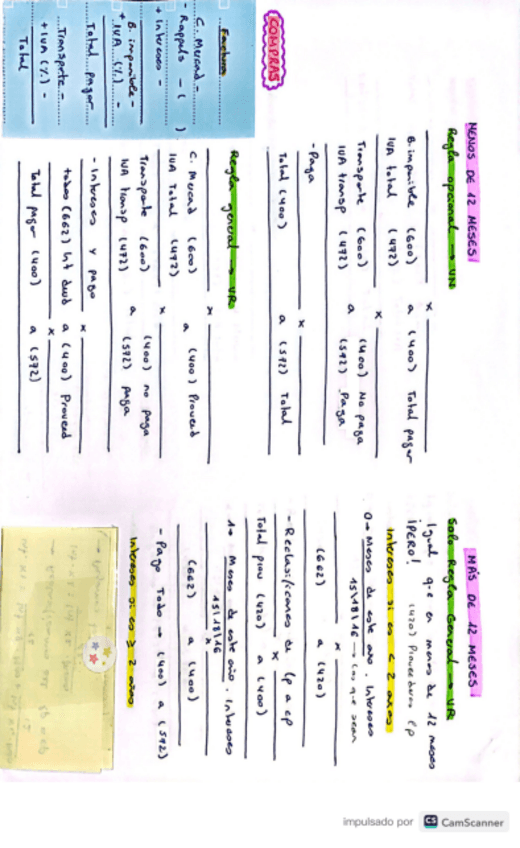 COMPRAS
Factura
C. Mercad -
- Rappels - ( )
+ intereses -
B. imponible -
+ IVA (%) -
Total pagar
Transporte -
+ IVA (%) -
Total
MENOS DE 12 MESES
Regla opcional → VN
x
B. imponible (600) a (400) Total pagar
IVA total (472)
x
Transporte (600) (400) No paga
IVA transp (472) a (572) Paga
- Paga
x
Total (400) a (572) Total
Regla general → VR
x
C. Mercad (600) a (400) Proveed
IVA Total (472)
x
Transporte (600) (400) no paga
IVA transp (472) a (572) paga
- Intereses y pago
x
todos (662) Int deud a (400) Proveed
x
Total pagar (400) a (572)
MÁS DE 12 MESES
Solo Regla General → VR
Igual q-e en menos de 12 meses
¡PERO! (420) Proveedores lp
Intereses si es < 2 años
0→ Meses de este año. Intereses
15\18\16 → Los q-e sean
x
(662) a (420)
- Reclasificaciones de lp a cp
x
Total prov (420) a (400)
1→ Meses de este año. Intereses
15\18\16
x
(662) a (400)
- Pago Todo → (400) a (572)
Intereses si es ≥ 2 años
impulsado por CS CamScanner